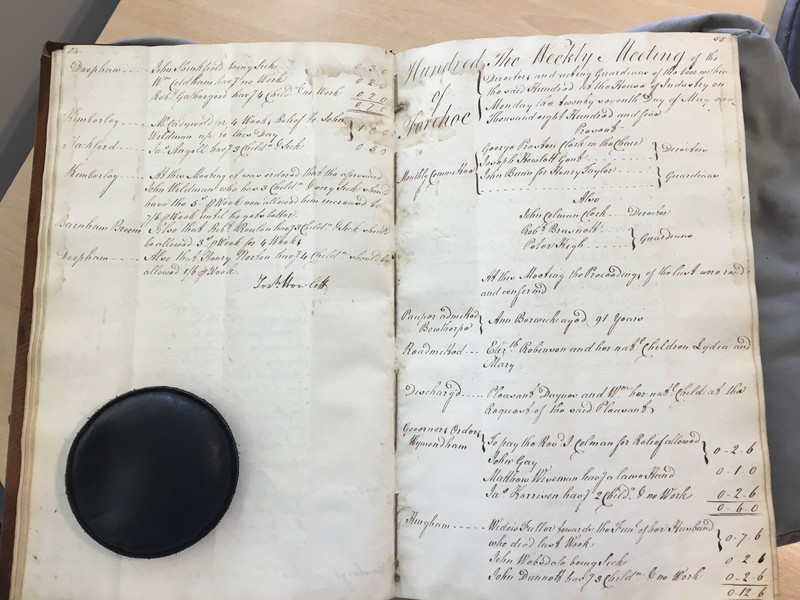 54.
Deopham John Shinkford being Sick 0 3 0
Wm Coldham hav.g no Work 0 2 0
Rob.t Gathergood hav.g 4 Child.n & no Work 0 2 0
0 7 0
Kimberley Mr Cadywold for 4 Weeks Relief to John
Weldman up to this Day 1 0 0
Hackford Jas Angell hav.g 3 Child.n & Sick 0 5 0
Kimberley At this Meeting it was ordered that the aforesaid
John Weldman who has 5 Child.n & very Sick should
have the 5s ⅌ Week now allowed him encreased to
7/6 ⅌ Week until he gets better.
Barnham Broom Also that Rob.t Moulton hav.g 3 Child.n & Sick should
be allowed 3s ⅌ Week for 4 Weeks
Deopham Also that Henry hav.g 4 Child.n should be
allowed 1/6 ⅌ Week.
Jos.h Howlett
55.
Hundred
of
Forehoe
The Weekly Meeting of the
Directors and acting Guardians of the Poor within
the said Hundred at the House of Industry on
Monday the twenty seventh Day of May one
Thousand eight Hundred and five
Present
Monthly Committee
George Preston Clerk in the Chair
Joseph Howlett Gent
Directors
John Brown for Henry Taylor
Guardians
Also
John Colman Clerk Director
Rob.t Brasnett
Peter High
Guardians
At this Meeting the Proceedings of the last were read
and confirmed
Pauper admitted
Bowthorpe
Ann Berwick aged 91 Years
Readmitted Eliz.th Robinson and her nat.l Children Lydia and
Mary
Discharg'd Pleasant Daynes and Wm her nat.l Child at the
Request of the said Pleasant
Governors Orders
Wymondham
To pay the Rev.d J Colman for Relief allowed
John Gay 0-2-6
Matthew Wiseman hav.g a lame Hand 0-1-0
Jas Kerreven hav.g 2 Child.n & no Work 0-2-6
0-6-0
Hingham Widow Fuller towards the Fun.l of her Husband
who died last Week 0-7-6
John Wobsdale being Sick 0 2 6
John Dunnett hav.g 3 Child.n & no Work 0-2-6
0-12-6